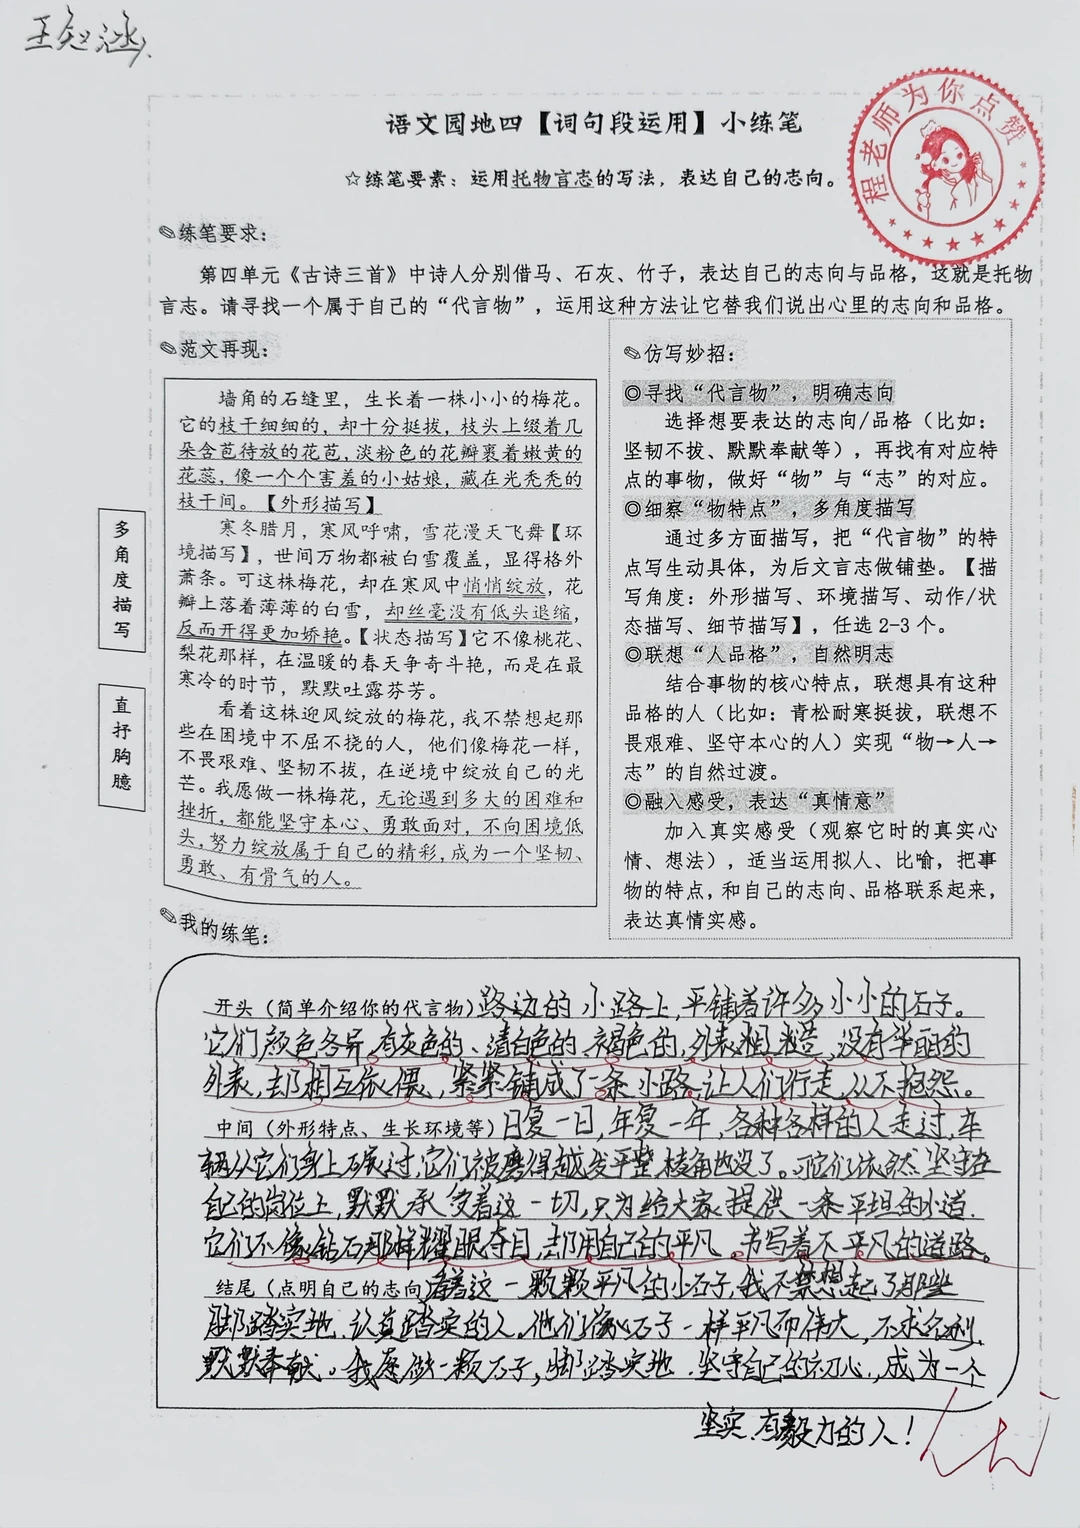 王知涵
程老师为你点赞
语文园地四【词句段运用】小练笔
☆练笔要素：运用托物言志的写法，表达自己的志向。
✎练笔要求：
第四单元《古诗三首》中诗人分别借马、石灰、竹子，表达自己的志向与品格，这就是托物
言志。请寻找一个属于自己的“代言物”，运用这种方法让它替我们说出心里的志向和品格。
✎范文再现：
墙角的石缝里，生长着一株小小的梅花。
它的枝干细细的，却十分挺拔，枝头上缀着几
朵含苞待放的花苞，淡粉色的花瓣裹着嫩黄的
花蕊，像一个个害羞的小姑娘，藏在光秃秃的
枝干间。【外形描写】
寒冬腊月，寒风呼啸，雪花漫天飞舞【环
境描写】，世间万物都被白雪覆盖，显得格外
萧条。可这株梅花，却在寒风中悄悄绽放，花
瓣上落着薄薄的白雪，却丝毫没有低头退缩，
反而开得更加娇艳。【状态描写】它不像桃花、
梨花那样，在温暖的春天争奇斗艳，而是在最
寒冷的时节，默默吐露芬芳。
看着这株迎风绽放的梅花，我不禁想起那
些在困境中不屈不挠的人，他们像梅花一样，
不畏艰难、坚韧不拔，在逆境中绽放自己的光
芒。我愿做一株梅花，无论遇到多大的困难和
挫折，都能坚守本心、勇敢面对，不向困境低
头，努力绽放属于自己的精彩，成为一个坚韧、
勇敢、有骨气的人。
多角度描写
直抒胸臆
✎仿写妙招：
◎寻找“代言物”，明确志向
选择想要表达的志向/品格（比如：
坚韧不拔、默默奉献等），再找有对应特
点的事物，做好“物”与“志”的对应。
◎细察“物特点”，多角度描写
通过多方面描写，把“代言物”的特
点写生动具体，为后文言志做铺垫。【描
写角度：外形描写、环境描写、动作/状
态描写、细节描写】，任选2-3个。
◎联想“人品格”，自然明志
结合事物的核心特点，联想具有这种
品格的人（比如：青松耐寒挺拔，联想不
畏艰难、坚守本心的人）实现“物→人→
志”的自然过渡。
◎融入感受，表达“真情意”
加入真实感受（观察它时的真实心
情、想法），适当运用拟人、比喻，把事
物的特点，和自己的志向、品格联系起来，
表达真情实感。
✎我的练笔：
开头（简单介绍你的代言物）路边的小路上，平铺着许多小小的石子。
它们颜色各异，有灰色的、清白色的、褐色的，外表粗糙，没有华丽的
外表，却相互依偎，紧紧铺成了一条小路，让人们行走，从不抱怨。
中间（外形特点、生长环境等）日复一日，年复一年，各种各样的人走过，车
辆从它们身上碾过，它们被磨得越发平整，棱角也没了。可它们依然坚守在
自己的岗位上，默默承受着这一切，只为给大家提供一条平坦的小道。
它们不像钻石那样耀眼夺目，却用自己的平凡，书写着不平凡的道路。
结尾（点明自己的志向）看着这一颗颗平凡的小石子，我不禁想起了那些
脚踏实地、认真踏实的人。他们像小石子一样平凡而伟大，不求名利，
默默奉献。我愿做一颗石子，脚踏实地，坚守自己的初心，成为一个
坚实、有毅力的人！